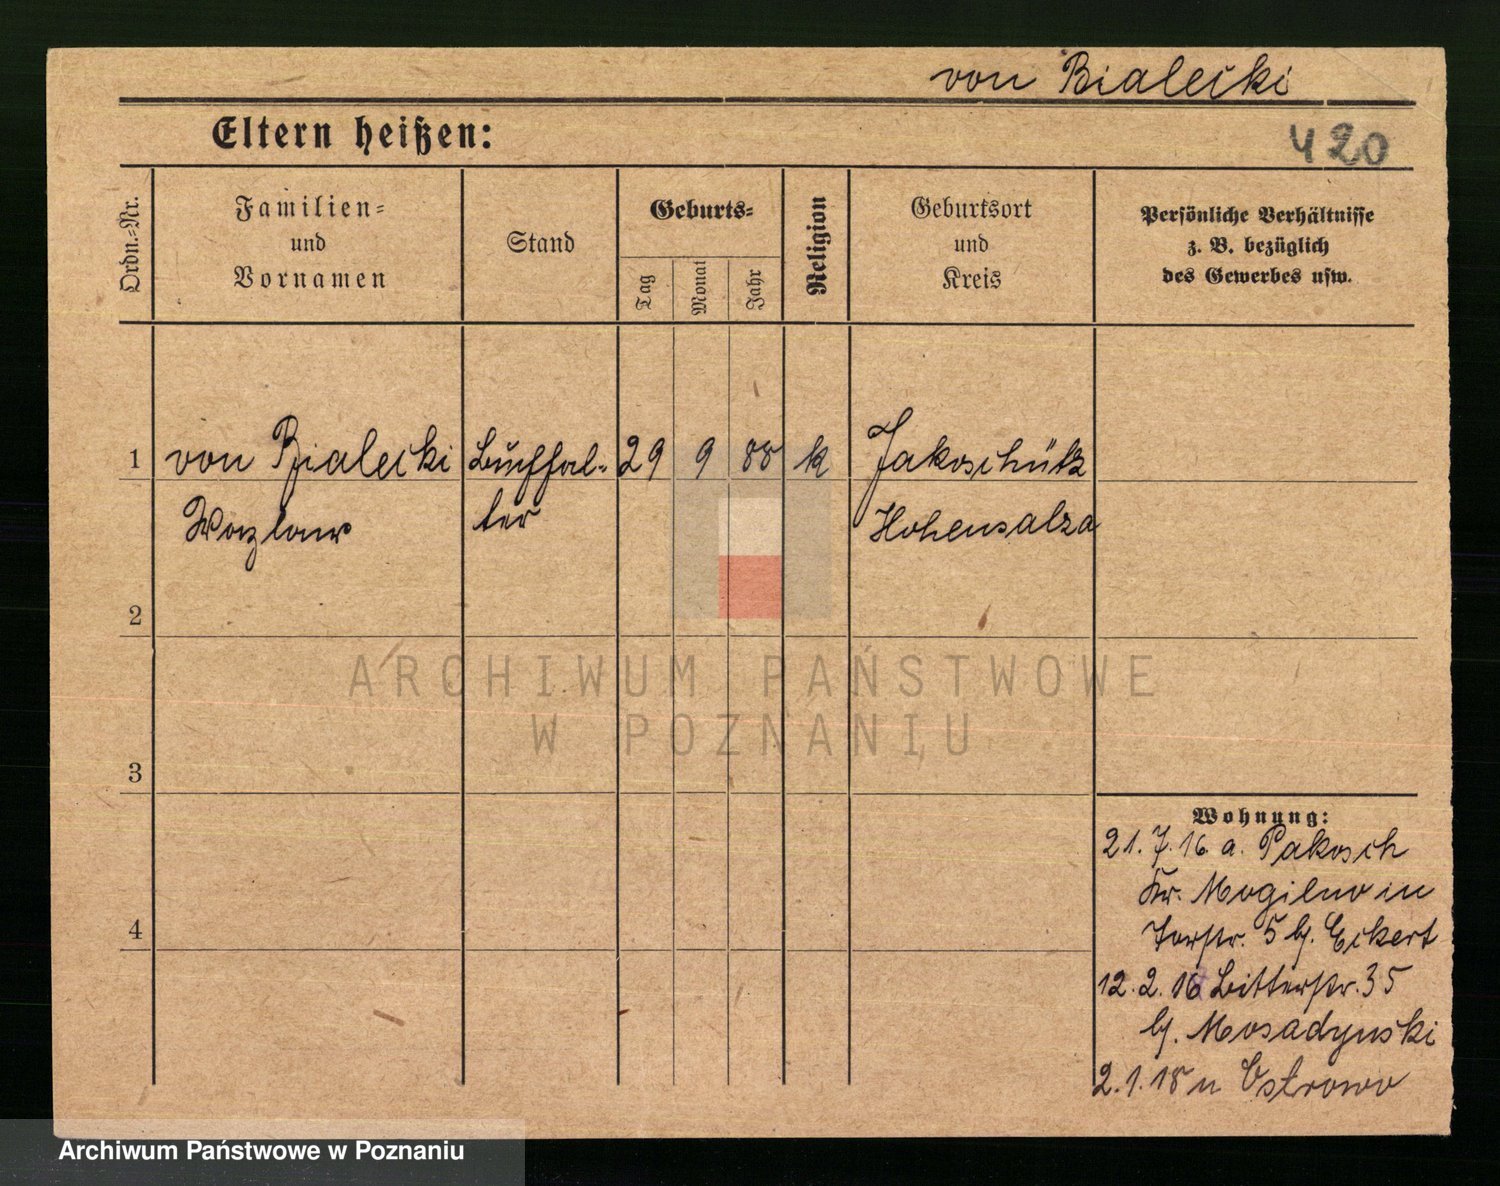 von Bialecki
Eltern heißen:
420
Ordn.-Nr.
Familien-
und
Vornamen
Stand
Geburts-
Tag
Monat
Jahr
Religion
Geburtsort
und
Kreis
Persönliche Verhältnisse
z. B. bezüglich
des Gewerbes usw.
1 von Bialecki Buchhal- 29 9 88 k Jakoschütz
Wazlaw ter Hohensalza
2
ARCHIWUM PAŃSTWOWE
W POZNANIU
3
Wohnung:
21.7.16 a. Pakosch
Kr. Mogilno in
Torstr. 5 b/. Eckert
4
12.2.16 Bitterstr. 35
b/. Mosadynski
2.1.18 n Ostrowo
Archiwum Państwowe w Poznaniu